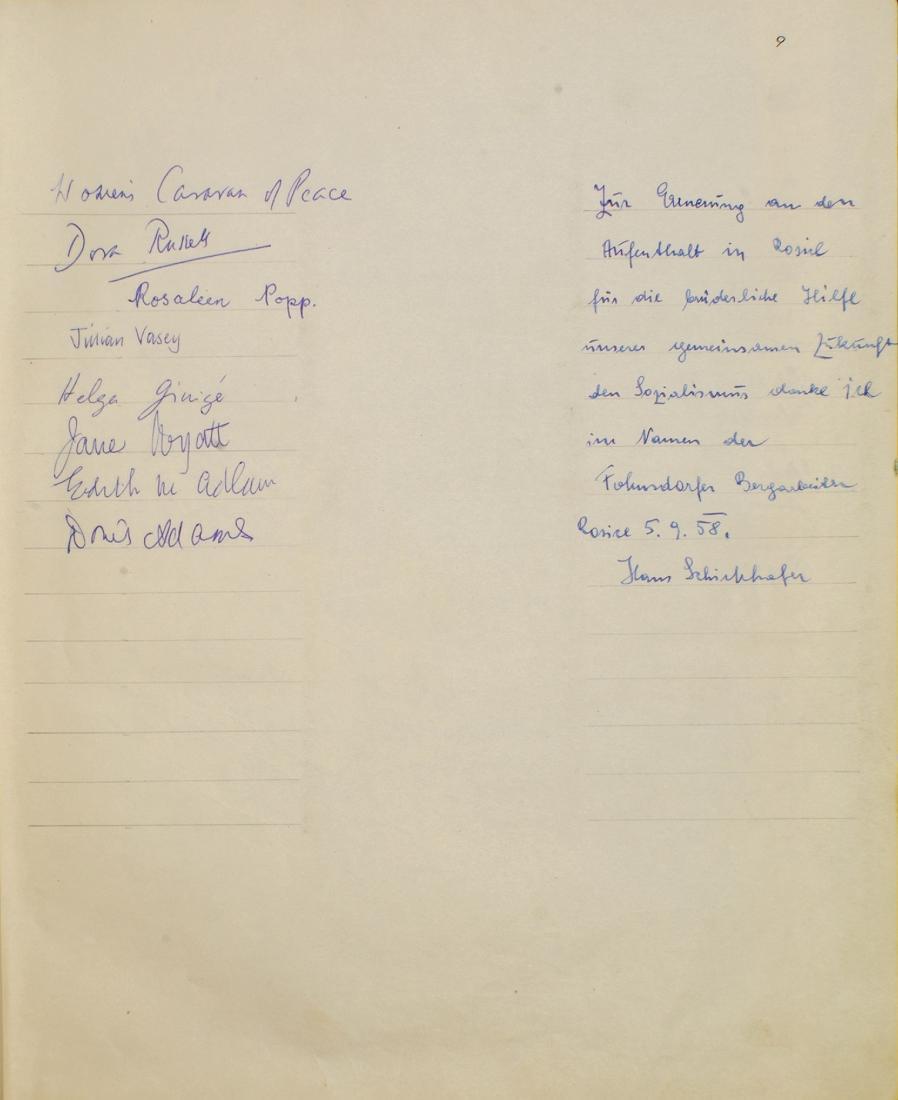 9
Women's Caravan of Peace
Dora Russell
Rosaleen Popp.
Jillian Vasey
Helga
Jane Wyatt
Edith M Adlam
Doris Adams
Zur Ernerung an den
Aufenthalt in
für die brüderliche Hilfe
unserer gemeinsamen Zukunft
den Sozialismus danke ich
im Namen der
Fohnsdorfer Bergarbeiter
Rosice 5. 9. 58.
Hans Schirkhofer